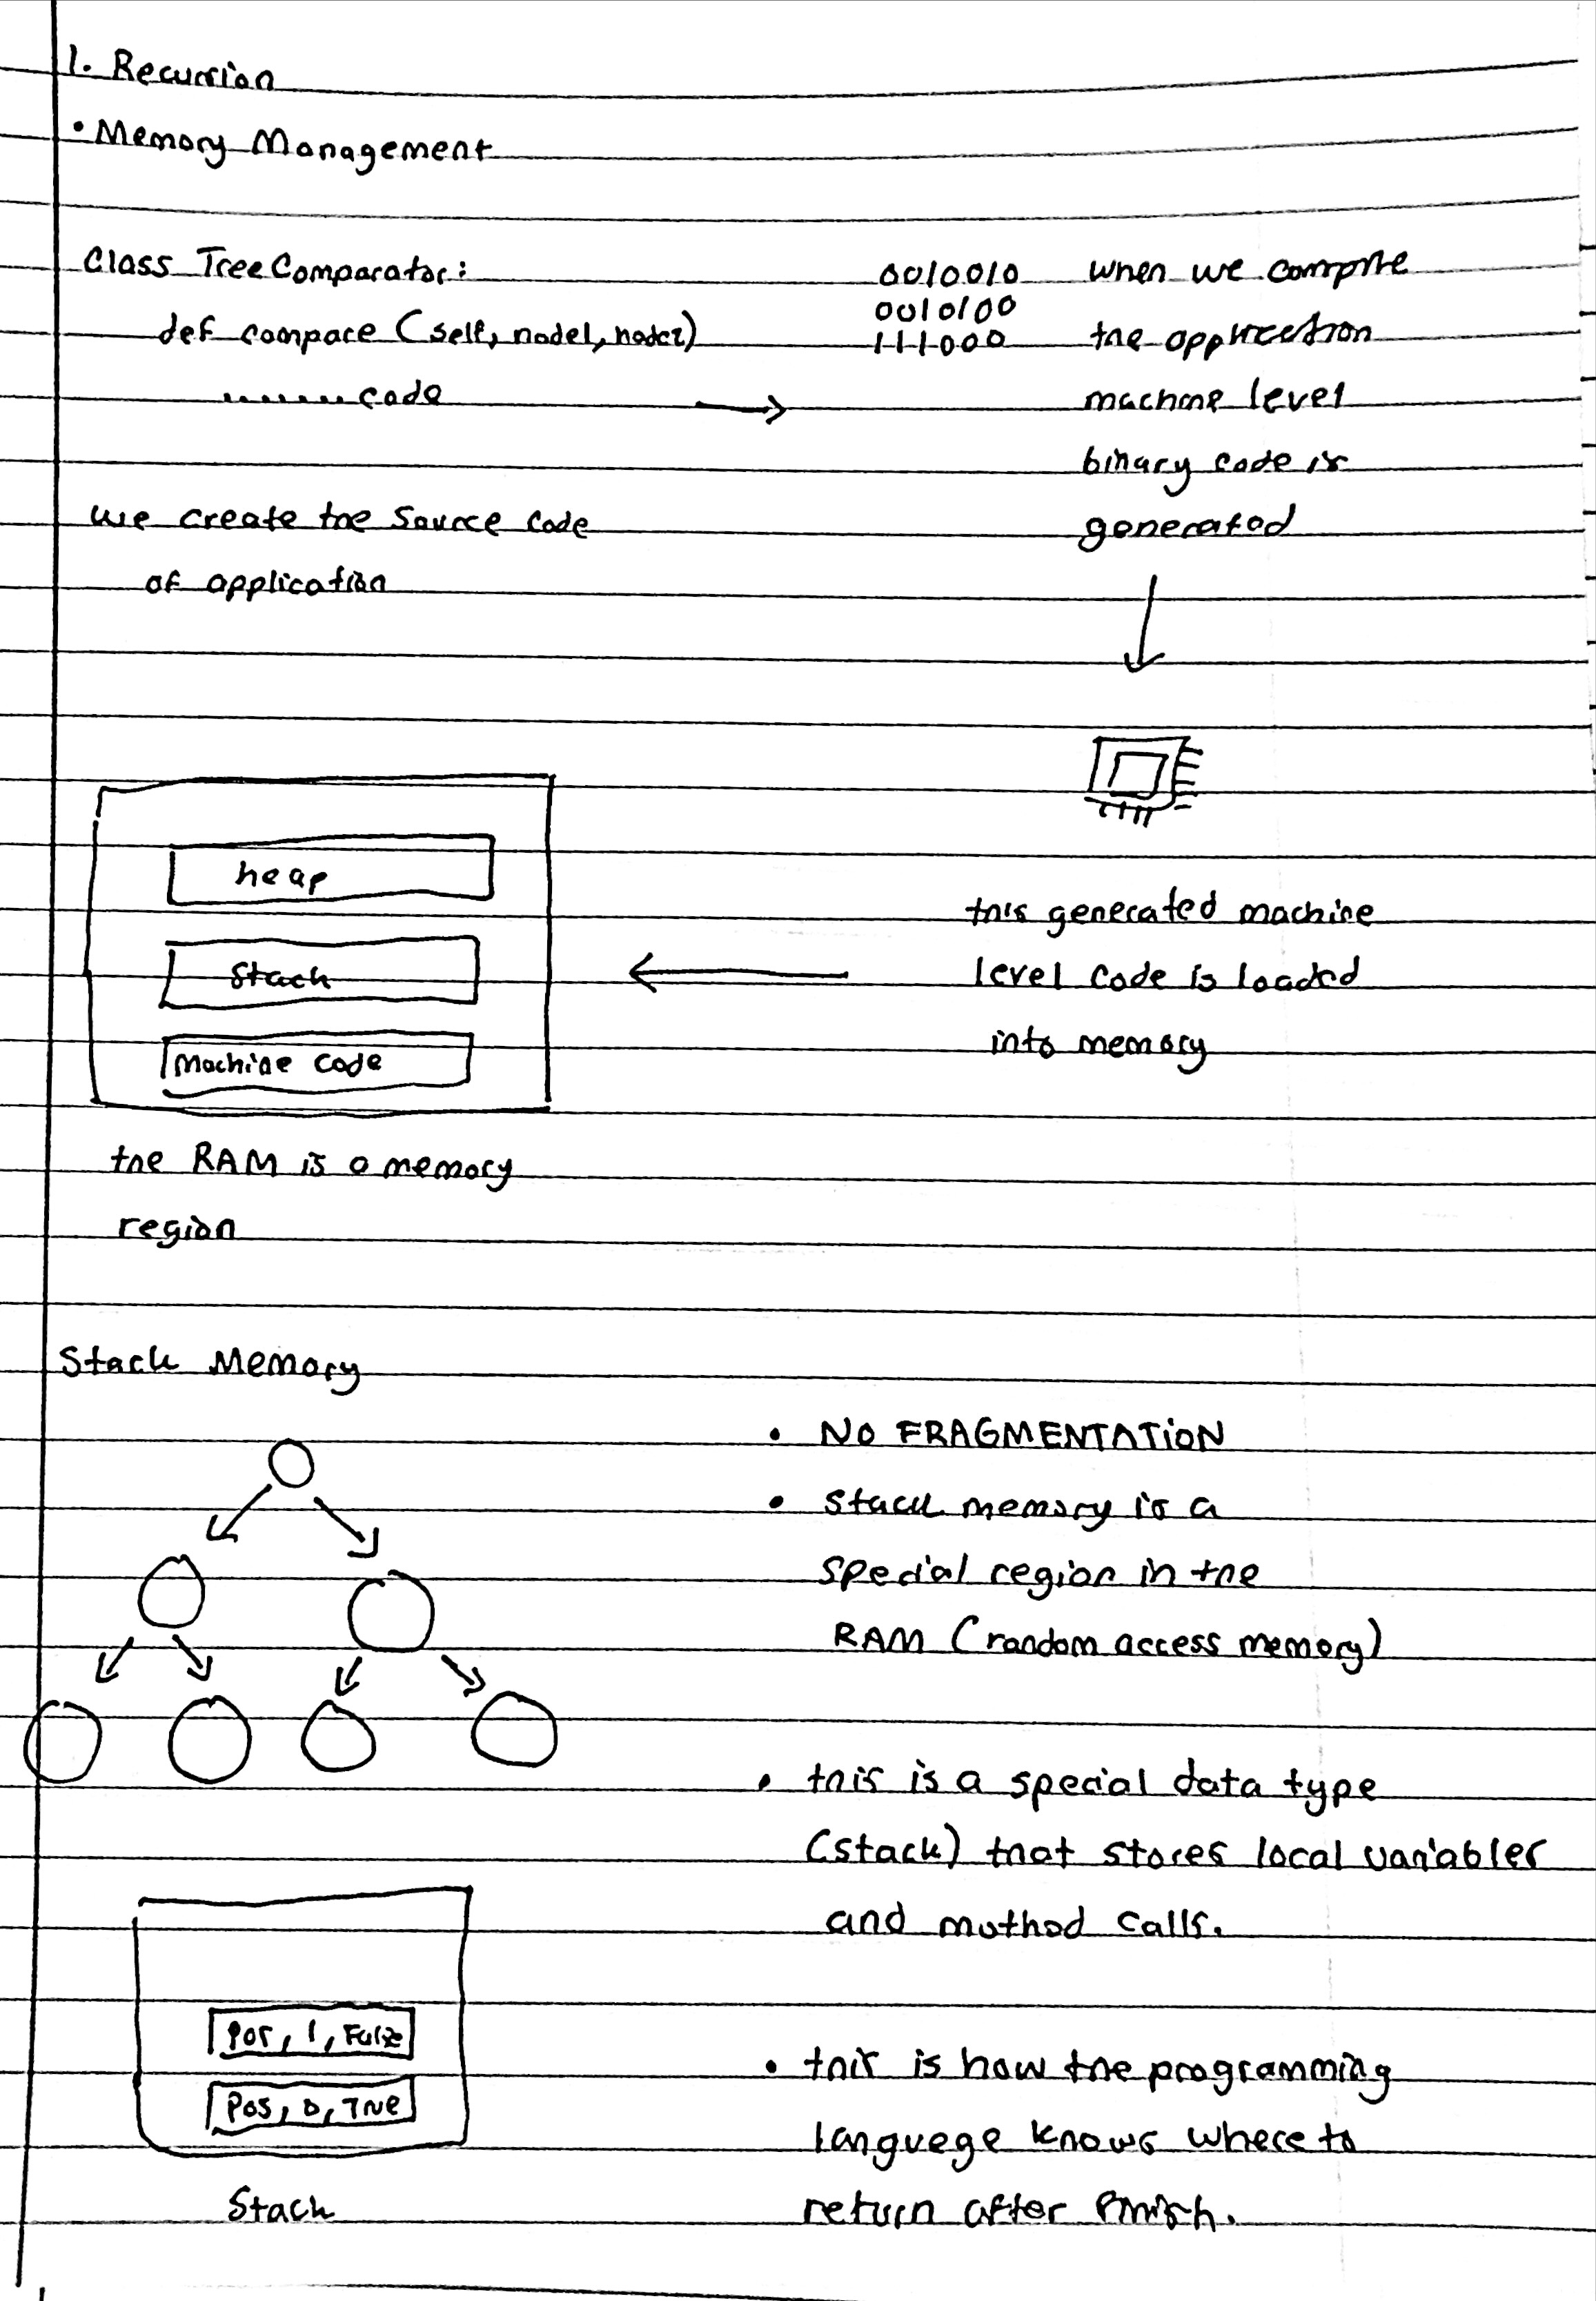 1. Recursion
• Memory Management
Class TreeComparator:
def compare (self, node1, node2)
....... code
we create the source code
of application
0010010
0010100
111000
when we compile
the application
machine level
binary code is
generated
heap
Stack
Machine code
this generated machine
level code is loaded
into memory
the RAM is a memory
region
Stack Memory
• NO FRAGMENTATION
• stack memory is a
special region in the
RAM (random access memory)
• this is a special data type
(stack) that stores local variables
and method calls.
Pos, 1, False
Pos, 0, True
Stack
• this is how the programming
language knows where to
return after finish.